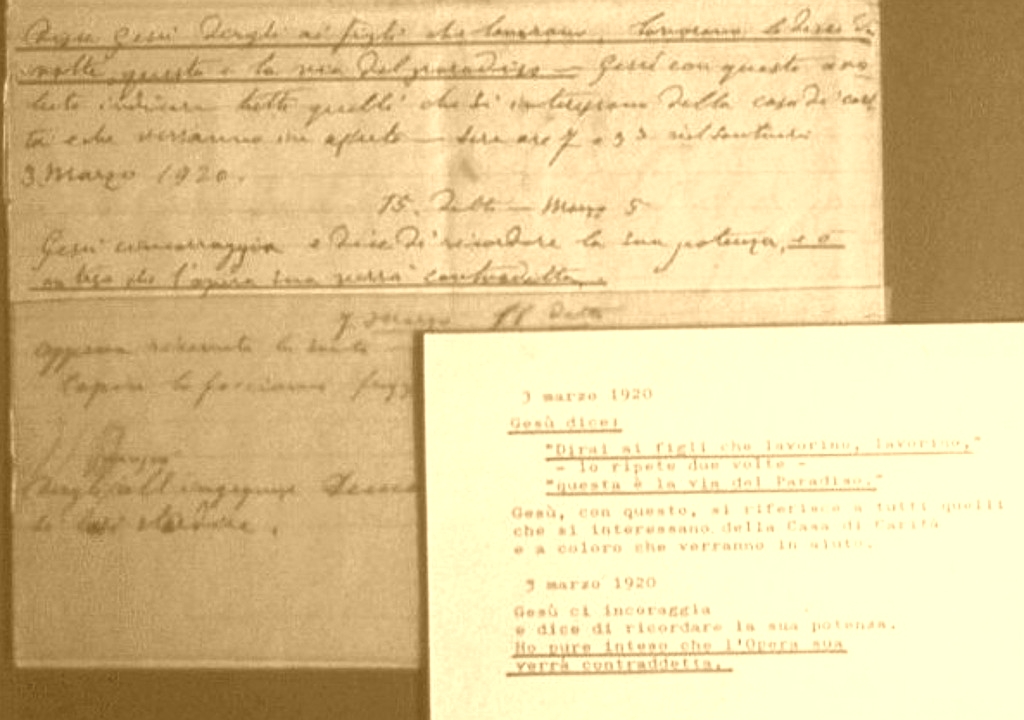 Gesù dirgli ai figli che lavorano, lavorano lo disse due
volte, questa è la via del paradiso — Gesù con questo à vo
luto indicare tutti quelli che si interessano della casa di cari
tà e che verranno in aiuto — Sera ore 7 e 33 nel santuari
3 Marzo 1920.
15. detto — Marzo 5
Gesù incoraggia e dice di ricordare la sua potenza, e ò
inteso che l'opera sua verrà contradetta.
7 Marzo 11 detto
Appena ricevuta la
lo facciamo
all ingegnere
3 marzo 1920
Gesù dice:
"Dirai ai figli che lavorino, lavorino,"
- lo ripete due volte -
"questa è la via del Paradiso."
Gesù, con questo, si riferisce a tutti quelli
che si interessano della Casa di Carità
e a coloro che verranno in aiuto.
3 marzo 1920
Gesù ci incoraggia
e dice di ricordare la sua potenza.
Ho pure inteso che l'Opera sua
verrà contraddetta.